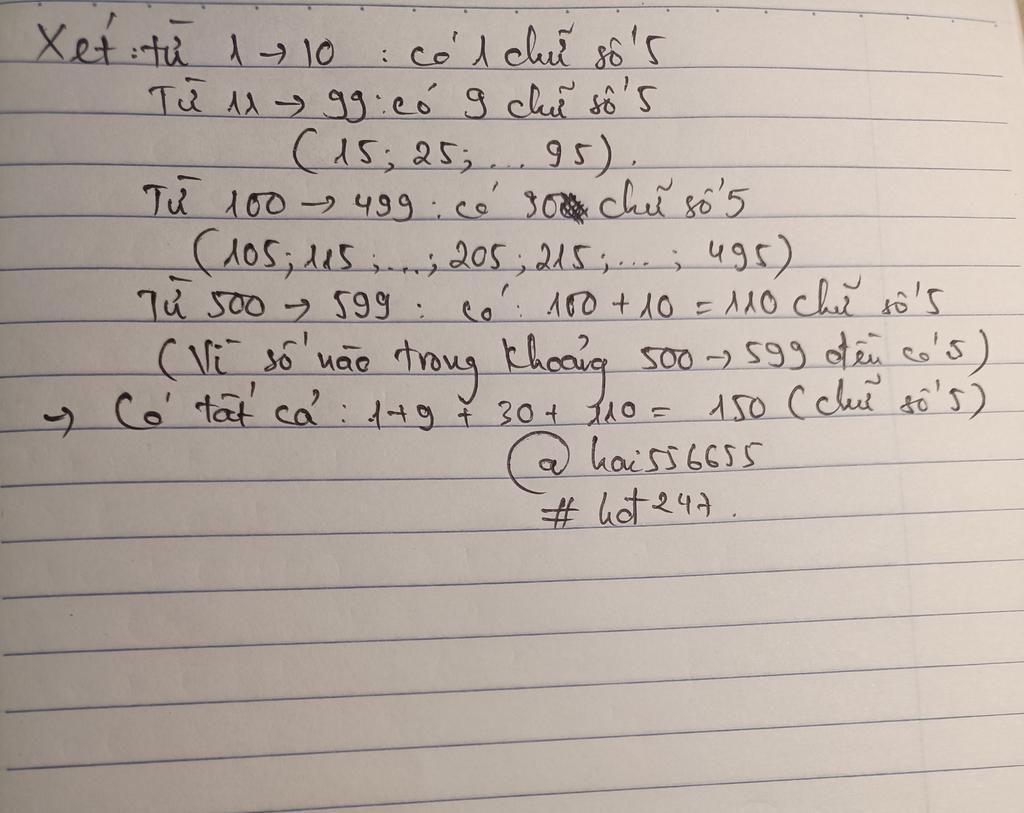 Xét: từ 1 → 10 : có 1 chữ số 5
Từ 11 → 99 : có 9 chữ số 5
(15; 25; ... 95).
Từ 100 → 499 : có 30 chữ số 5
(105; 115; ...; 205; 215; ...; 495)
Từ 500 → 599 : có: 100 + 10 = 110 chữ số 5
(Vì số nào trong khoảng 500 → 599 đều có 5)
→ Có tất cả: 1 + 9 + 30 + 110 = 150 (chữ số 5)
@hai556655
# hot247.